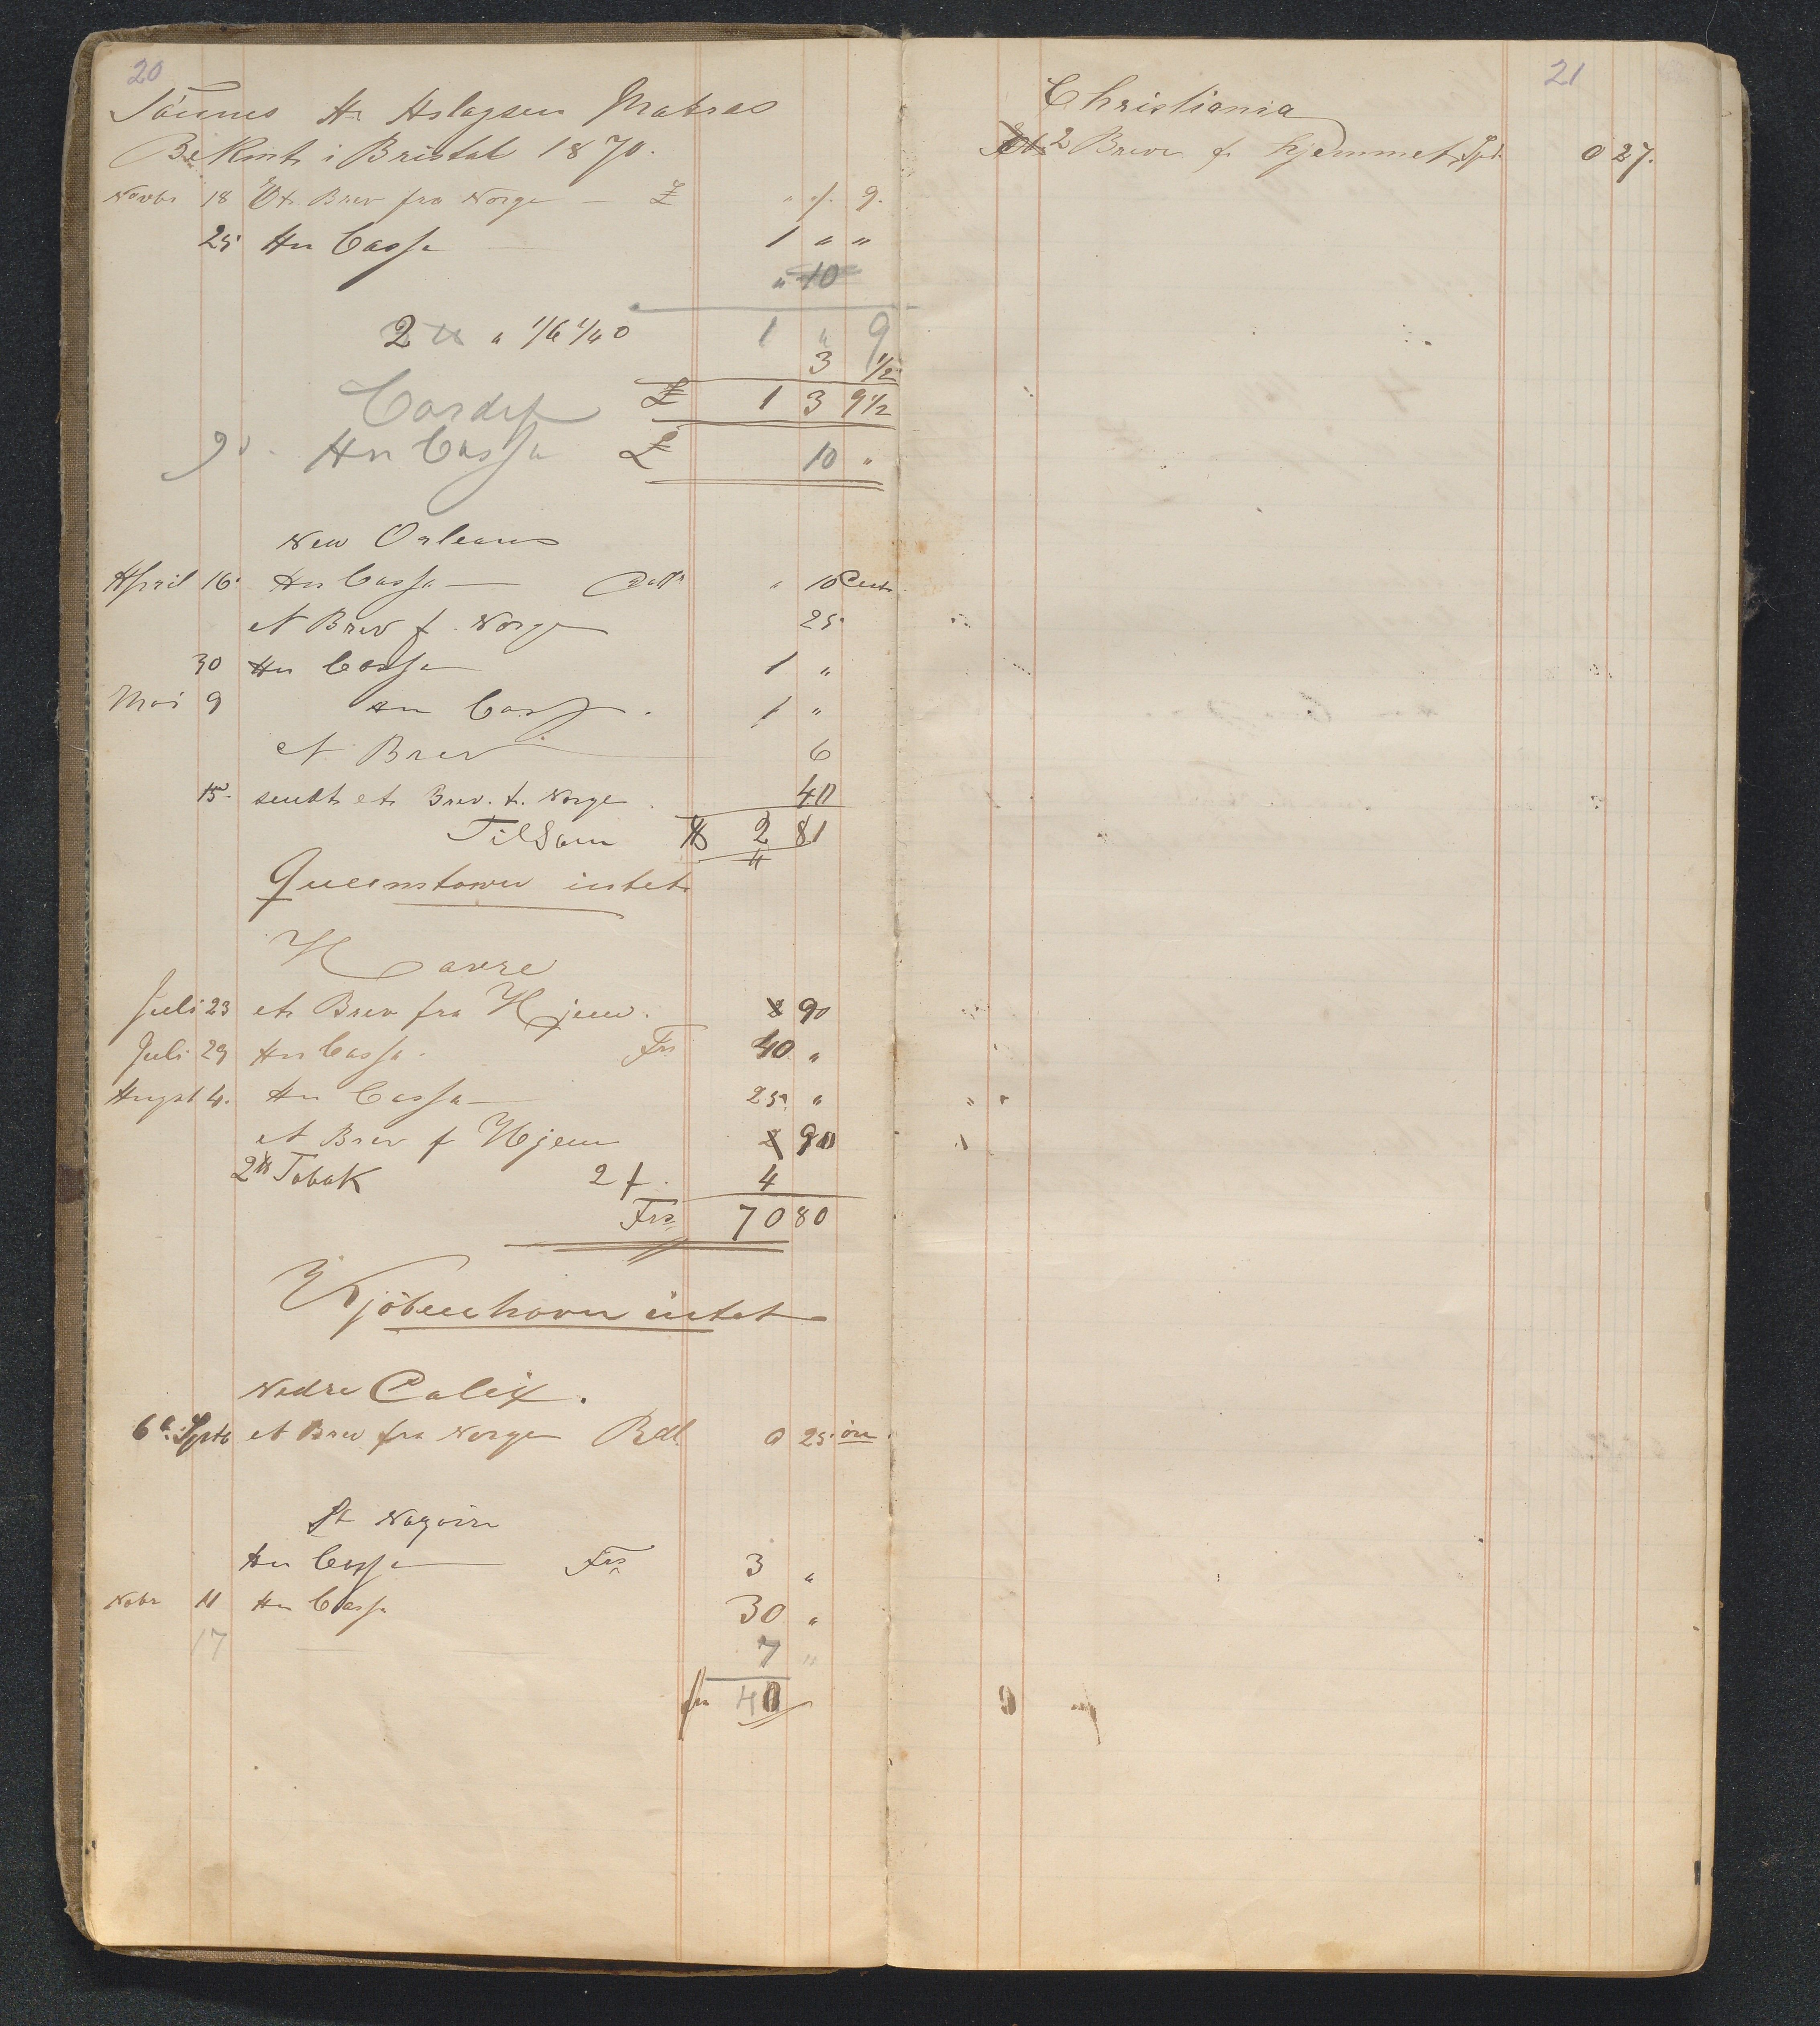 20
Tönnes A. Aslagsen Matros
Bekmt i Bristol 1870.
Novbr 18 Et Brev fra Norge — £ " " 9.
25 An Cassa 1 " "
" 10
2 ℔ a 1/6 1 " 9
3 1/2
Cardif £ 1 3 9 1/2
An Cassa £ 10 "
New Orleans
April 16 An Cassa — Doll " 10 Cents
et Brev f. Norge 25
30 An Cassa 1 "
Mai 9 An Cassa. 1 "
et Brev 6
15. sendt et Brev. t. Norge 40
Tilsam $ 2 81
Queenstown intet
Havre
Juli 23 et Brev fra Hjem. 90
Juli 29 An Cassa. Frs 40 "
Augst 4. An Cassa — 25 "
et Brev f Hjem 90
2 ℔ Tobak 2 f. 4
Frs 70 80
Kjöbenhavn intet
Nedre Calix.
6te Sptb et Brev fra Norge Rdl. 0 25 öre
St Nazaire
An Cassa — Frs 3 "
Nobr 11 An Cassa 30 "
17 7 "
frs 40
21
Christiania
2 Breve f. hjemmet Spd. 0 27.